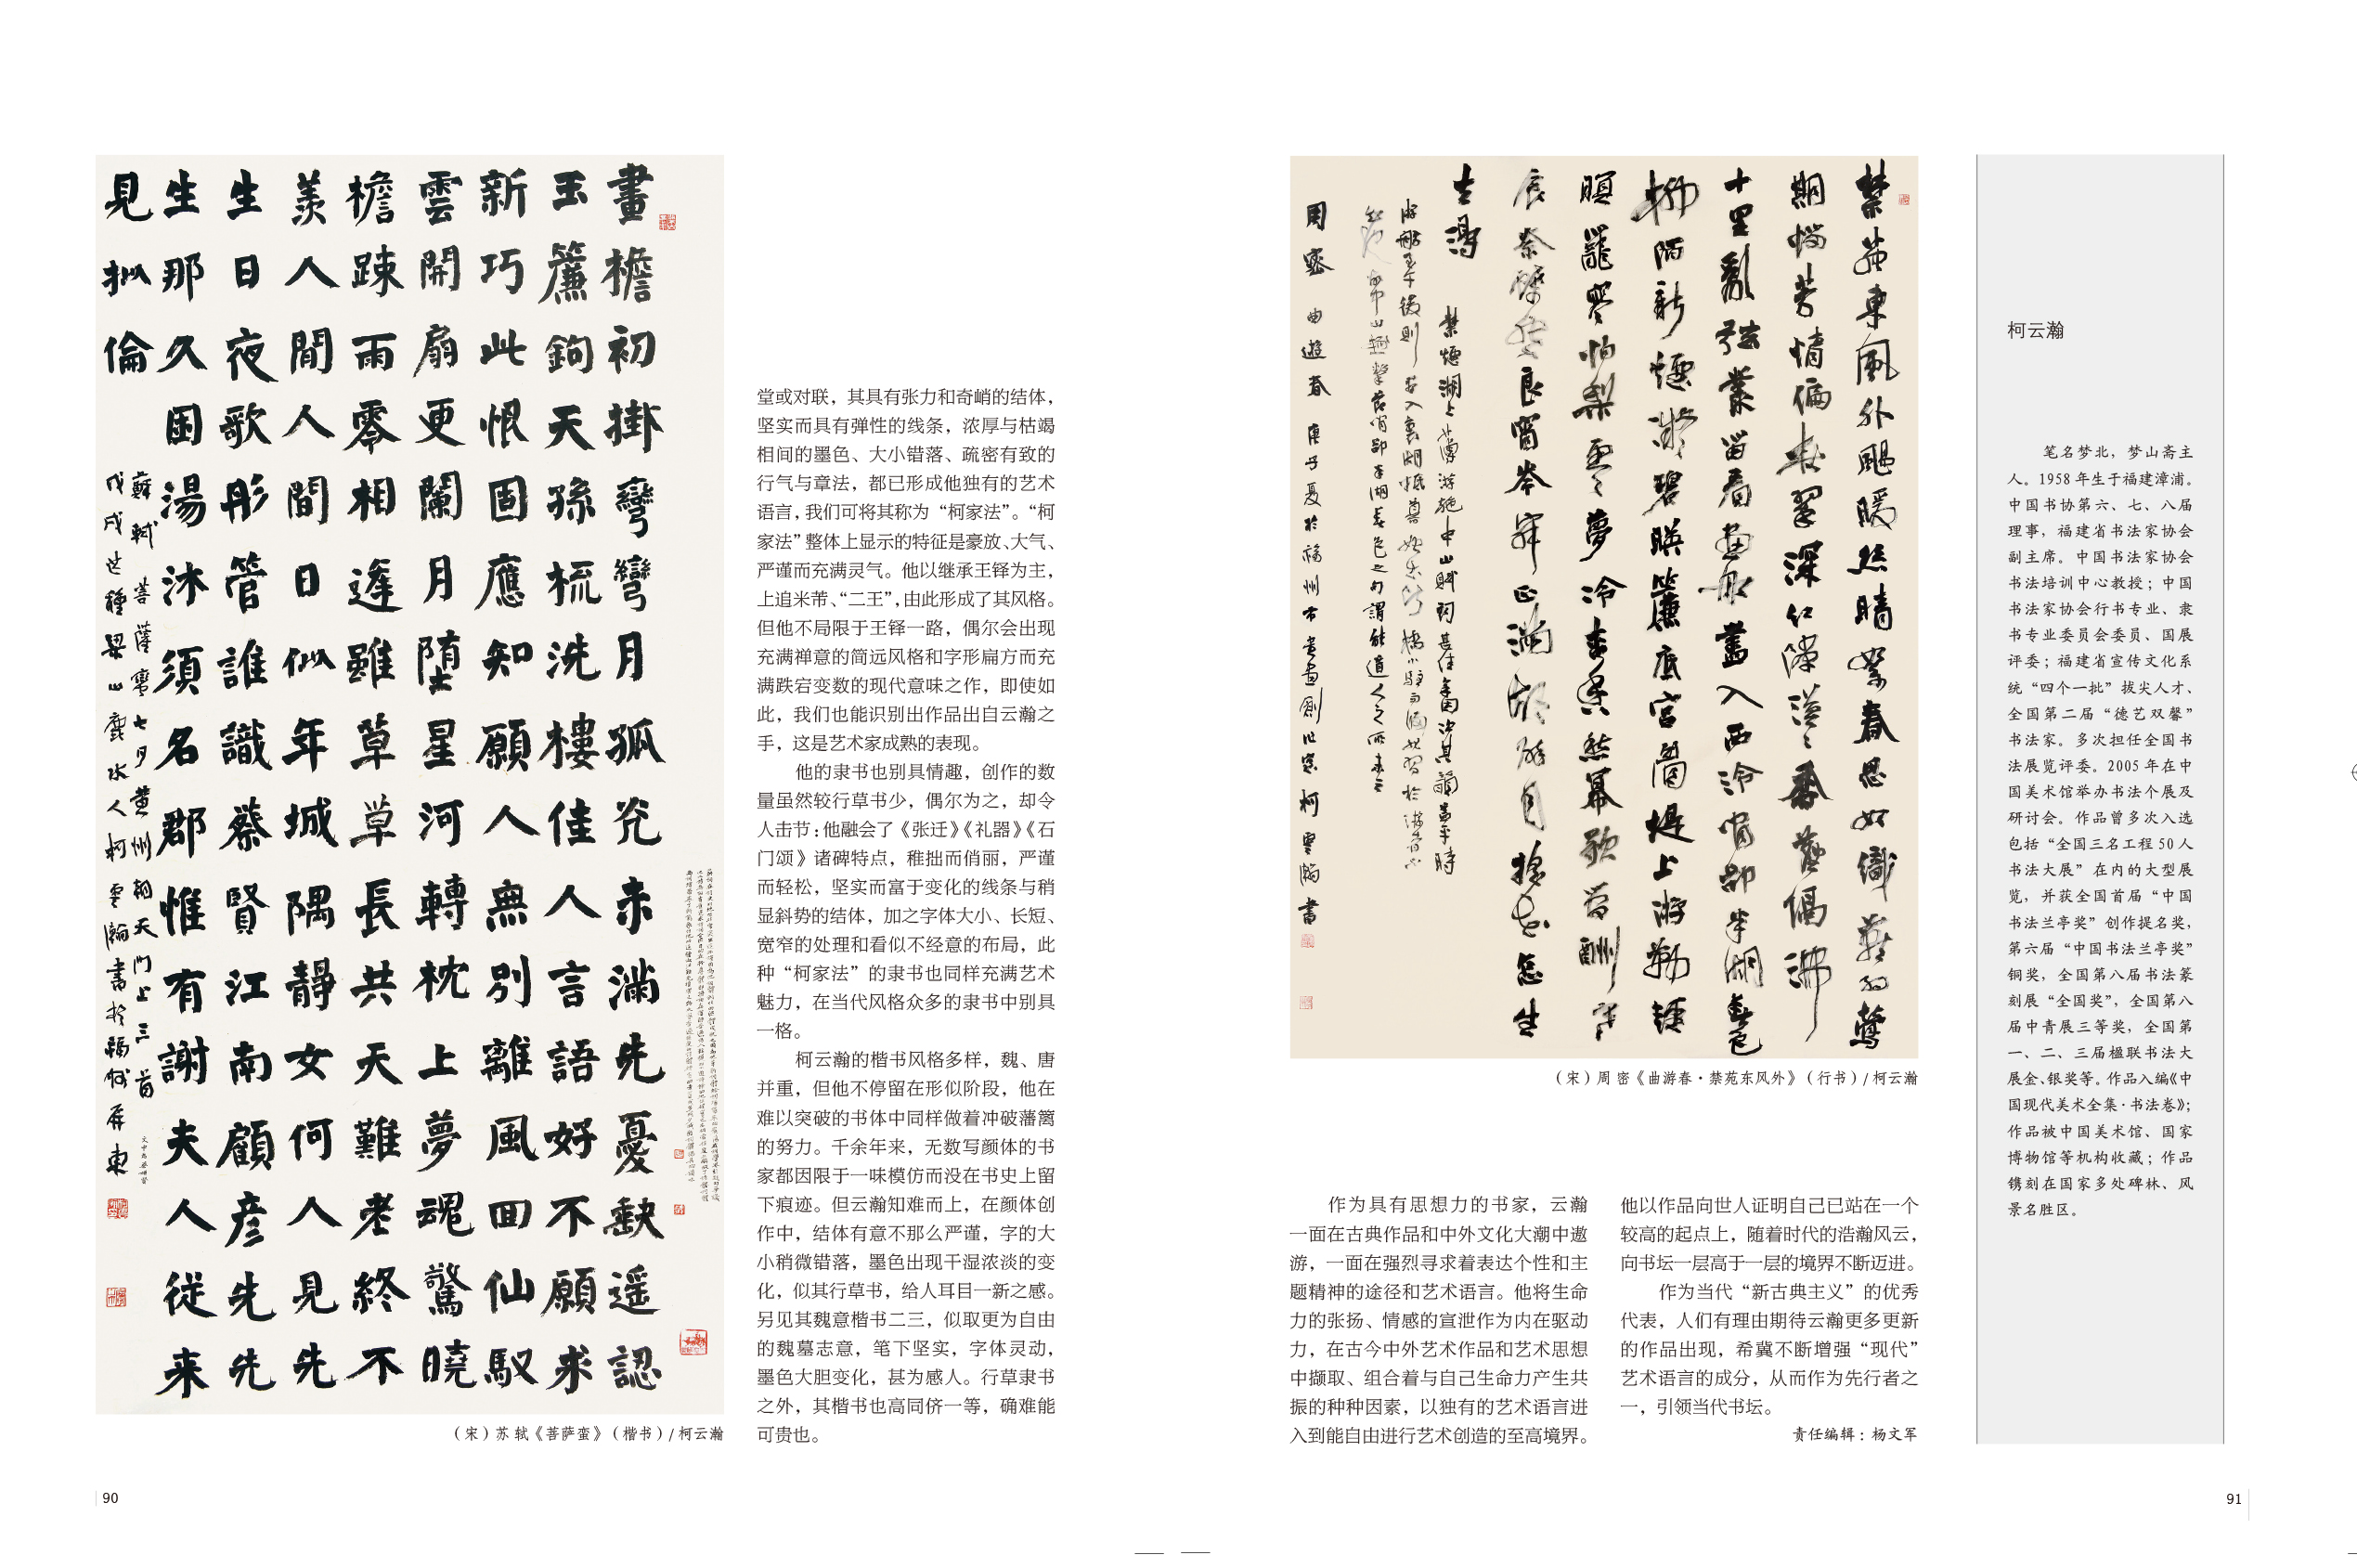 畫檐初掛彎彎月孤光未滿先憂缺遥認
玉簾鉤天孫梳洗樓佳人言語好不願求
新巧此恨固應知願人無別離風回仙馭
雲開扇更闌月墮星河轉枕上夢魂驚曉
檐踈雨零相逢雖草草長共天難老終不
羨人間人間日似年城隅靜女何人見先
生日夜歌彤管誰識蔡賢江南顧彦先先
生那久困湯沐須名郡惟有謝夫人從来
見拟倫
蘇軾 菩薩蠻 七夕黄州朝天門上三首
戊戌芒種梁山鹿水人柯雲瀚書於福州屏東
（宋）苏 轼《菩萨蛮》（楷书）/ 柯云瀚
90
堂或对联，其具有张力和奇峭的结体，
坚实而具有弹性的线条，浓厚与枯竭
相间的墨色、大小错落、疏密有致的
行气与章法，都已形成他独有的艺术
语言，我们可将其称为“柯家法”。“柯
家法”整体上显示的特征是豪放、大气、
严谨而充满灵气。他以继承王铎为主，
上追米芾、“二王”，由此形成了其风格。
但他不局限于王铎一路，偶尔会出现
充满禅意的简远风格和字形扁方而充
满跌宕变数的现代意味之作，即使如
此，我们也能识别出作品出自云瀚之
手，这是艺术家成熟的表现。
他的隶书也别具情趣，创作的数
量虽然较行草书少，偶尔为之，却令
人击节：他融会了《张迁》《礼器》《石
门颂》诸碑特点，稚拙而俏丽，严谨
而轻松，坚实而富于变化的线条与稍
显斜势的结体，加之字体大小、长短、
宽窄的处理和看似不经意的布局，此
种“柯家法”的隶书也同样充满艺术
魅力，在当代风格众多的隶书中别具
一格。
柯云瀚的楷书风格多样，魏、唐
并重，但他不停留在形似阶段，他在
难以突破的书体中同样做着冲破藩篱
的努力。千余年来，无数写颜体的书
家都因限于一味模仿而没在书史上留
下痕迹。但云瀚知难而上，在颜体创
作中，结体有意不那么严谨，字的大
小稍微错落，墨色出现干湿浓淡的变
化，似其行草书，给人耳目一新之感。
另见其魏意楷书二三，似取更为自由
的魏墓志意，笔下坚实，字体灵动，
墨色大胆变化，甚为感人。行草隶书
之外，其楷书也高同侪一等，确难能
可贵也。
禁苑東風外颺暖絲晴絮春思如織燕約鶯
期惱芳情偏在翠深紅隙漠漠香塵隔沸
十里亂弦叢笛看畫船盡入西泠閒卻半湖春色
柳陌新煙凝碧映簾底宮眉堤上游勒輕
暝籠寒怕梨雲夢冷杏香愁冪歌管酬寒
食奈蝶怨良宵岑寂正滿湖碎月搖花怎生
去得
禁煙湖上薄游施中山賦詞甚佳余因次其韻蓋平時
游船至午後則盡入裏湖抵暮始出斷橋小駐而歸非習於游者不
知也故中山極擊節閒卻半湖春色之句謂能道人之所未云
周密 曲遊春 庚子夏於福州市書畫創作室柯雲瀚書
（宋）周 密《曲游春·禁苑东风外》（行书）/ 柯云瀚
作为具有思想力的书家，云瀚
一面在古典作品和中外文化大潮中遨
游，一面在强烈寻求着表达个性和主
题精神的途径和艺术语言。他将生命
力的张扬、情感的宣泄作为内在驱动
力，在古今中外艺术作品和艺术思想
中撷取、组合着与自己生命力产生共
振的种种因素，以独有的艺术语言进
入到能自由进行艺术创造的至高境界。
他以作品向世人证明自己已站在一个
较高的起点上，随着时代的浩瀚风云，
向书坛一层高于一层的境界不断迈进。
作为当代“新古典主义”的优秀
代表，人们有理由期待云瀚更多更新
的作品出现，希冀不断增强“现代”
艺术语言的成分，从而作为先行者之
一，引领当代书坛。
责任编辑：杨文军
柯云瀚
笔名梦北，梦山斋主
人。1958 年生于福建漳浦。
中国书协第六、七、八届
理事，福建省书法家协会
副主席。中国书法家协会
书法培训中心教授；中国
书法家协会行书专业、隶
书专业委员会委员、国展
评委；福建省宣传文化系
统“四个一批”拔尖人才、
全国第二届“德艺双馨”
书法家。多次担任全国书
法展览评委。2005 年在中
国美术馆举办书法个展及
研讨会。作品曾多次入选
包括“全国三名工程 50 人
书法大展”在内的大型展
览，并获全国首届“中国
书法兰亭奖”创作提名奖，
第六届“中国书法兰亭奖”
铜奖，全国第八届书法篆
刻展“全国奖”，全国第八
届中青展三等奖，全国第
一、二、三届楹联书法大
展金、银奖等。作品入编《中
国现代美术全集·书法卷》；
作品被中国美术馆、国家
博物馆等机构收藏；作品
镌刻在国家多处碑林、风
景名胜区。
91